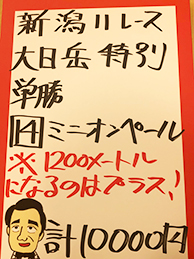 新潟11レース
大日岳特別
単勝
14 ミニオンペール
※1200メートル
になるのはプラス!
計10000円